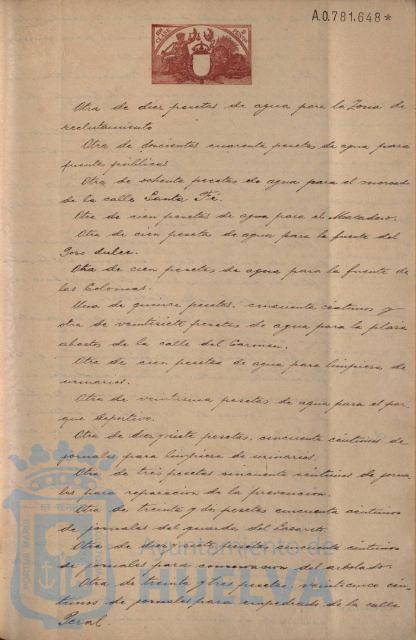 A.0.781.648*
Otra de diez pesetas de agua para la Zona de
reclutamiento
Otra de doscientas cuarenta pesetas de agua para
fuentes públicas
Otra de ochenta pesetas de agua para el mercado
de la calle Santa Fé.
Otra de cien pesetas de agua para el Matadero.
Otra de cien pesetas de agua para la fuente del
Pozo dulce.
Otra de cien pesetas de agua para la fuente de
las Colonias.
Una de quince pesetas, cincuenta céntimos y
otra de veintisiete pesetas de agua para la plaza
abastos de la calle del Carmen.
Otra de cien pesetas de agua para limpieza de
urinarios.
Otra de veintiuna pesetas de agua para el par
que deportivo.
Otra de diez y siete pesetas, cincuenta céntimos de
jornales para limpieza de urinarios.
Otra de tres pesetas cincuenta céntimos de jorna
les para reparacion de la prevencion.
Otra de treinta y dos pesetas cincuenta céntimos
de jornales del guarda del Lazareto.
Otra de pesetas cincuenta céntimos
de jornales para conservacion del arbolado.
Otra de treinta y tres pesetas veinticinco cén
timos de jornales para empedrado de la calle
Peral.
Ayuntamiento de
HUELVA
PORTUS MARIS